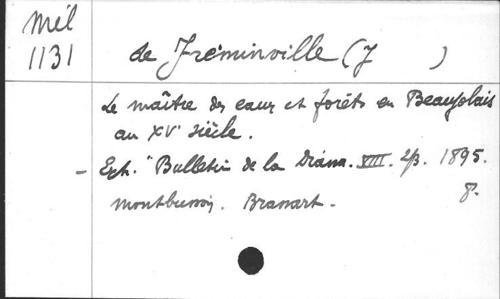 Mél
1131
de Fréminville (J )
Le maître des eaux et forêts en Beaujolais
au XVe siècle.
- Ext. "Bulletin de la Diana. VIII. 2/3. 1895.
Montbrison. Brassart. 8°